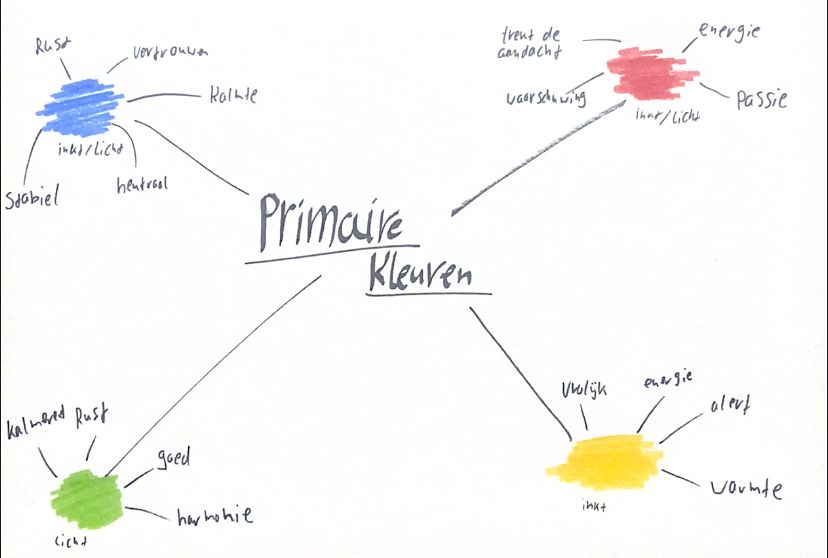 Primaire
Kleuren
Rust
vertrouwen
Kalmte
inkt/licht
neutraal
Stabiel
trekt de
aandacht
energie
waarschuwing
Passie
inkt/licht
Kalmerend
Rust
goed
harmonie
licht
Vrolijk
energie
alert
warmte
inkt